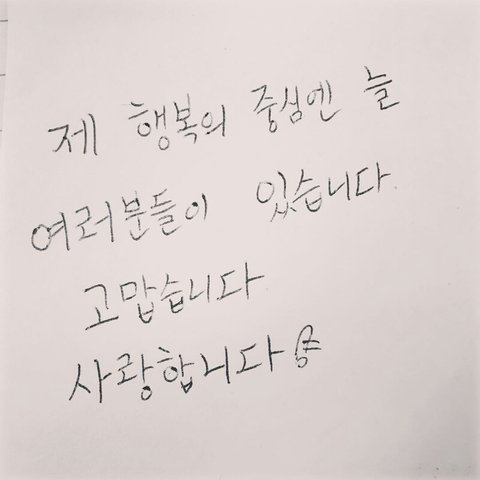 제 행복의 중심엔 늘
여러분들이 있습니다.
고맙습니다
사랑합니다